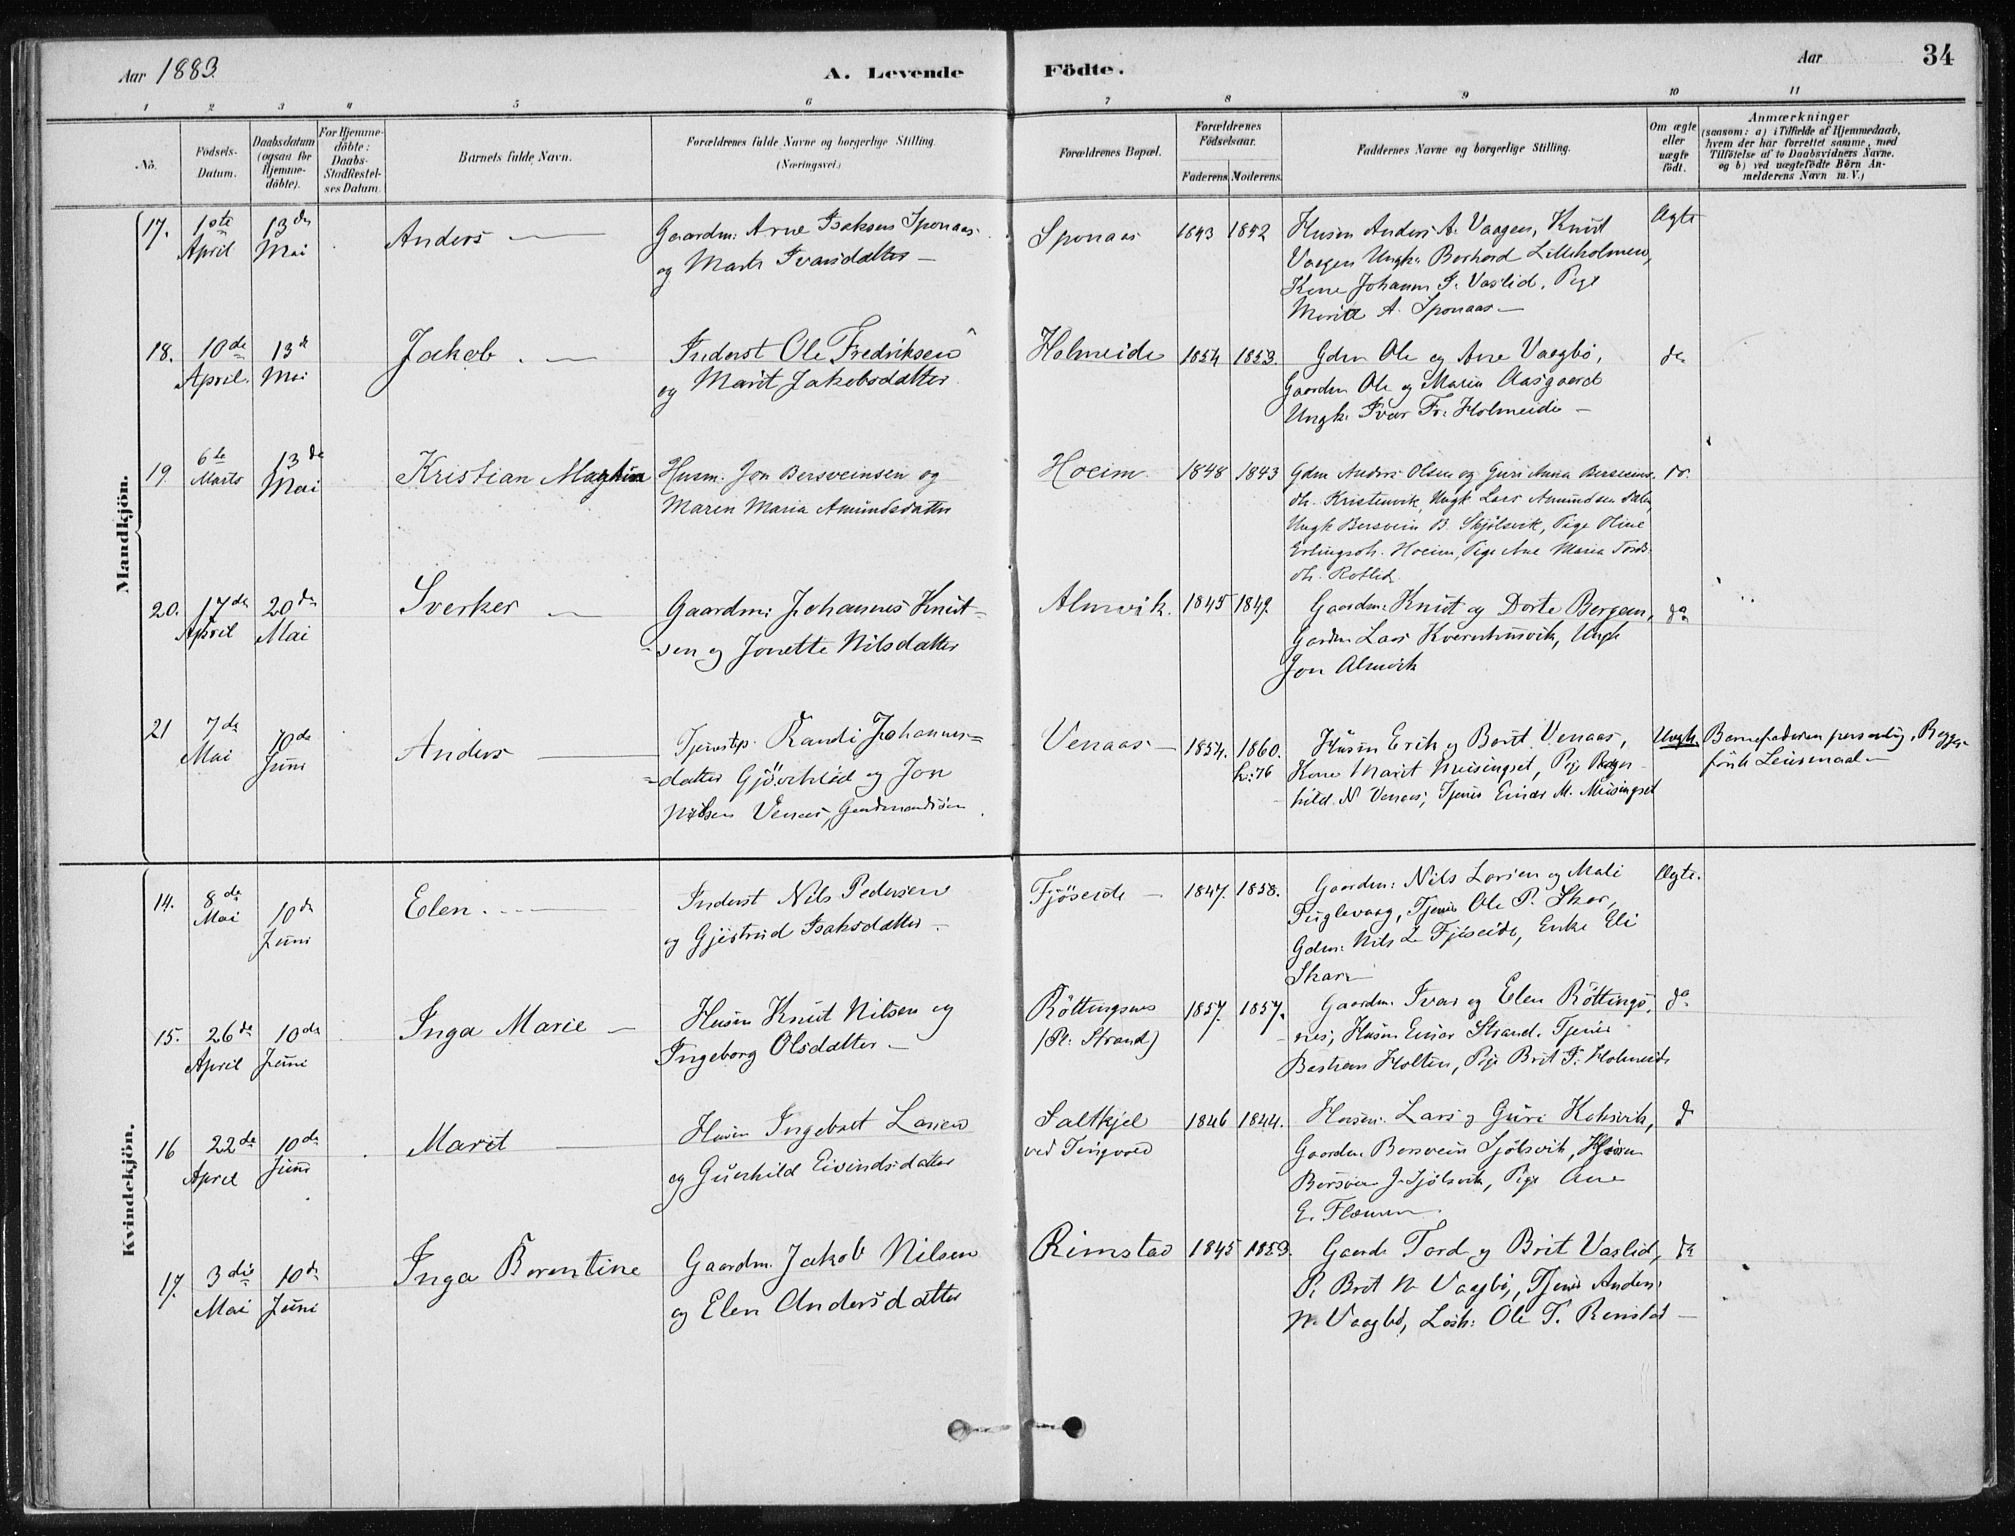 Aar 1883.
A. Levende Födte.
Aar
34
1 2 3 4 5 6 7 8 9 10 11
No.
Födsels-Datum.
Daabsdatum (ogsaa for Hjemme-döbte).
For Hjemme-döbte: Daabs-Stadfæstel-ses Datum.
Barnets fulde Navn.
Forældrenes fulde Navne og borgerlige Stilling. (Næringsvei.)
Forældrenes Bopæl.
Forældrenes Födselsaar.
Faderens. Moderens.
Faddernes Navne og borgerlige Stilling.
Om ægte eller uægte födt.
Anmærkninger
(saasom: a) i Tilfælde af Hjemmedaab, hvem der har forrettet samme, med Tilföielse af to Daabsvidners Navne, og b) ved uægtefödte Börn An-melderens Navn m. V.)
Mandkjön.
17. 1ste April 13de Mai Anders —
Gaardm: Arne Isaksen Sponaas
og Marit Ivarsdatter —
Sponaas 1843 1852
Husm Anders A. Vaagen, Knut
Vaagen Ungk. Lilleholmen,
Kone Johanna I. Vaslid, Pige
Marit A. Sponaas —
Ægte
18. 10de April 13de Mai Jakob . —
Inderst Ole Fredriksen
og Marit Jakobsdatter
Holmeide 1854 1853.
Gdm Ole og Ane Vaagbø,
Gaardm Ole og Maria Aasgaard
Ungk. Ivar Fr. Holmeide —
do
19. 6te Marts 13de Mai Kristian
Husm. Jon Bersveinsen og
Maren Maria Amundsdatter
Hoeim. 1848 1843
Gdm Anders Olsen og Guri Anna Bersveins-
dtr. Kristenvik, Ungk Lars Amundsen
Ungk Bersvein B. Skjølsvik, Pige Oline
Erlingsdtr. Hoeim, Pige Ane Maria Tords-
dtr.
do.
20. 17de April 20de Mai Sverker —
Gaardm: Johannes Knut-
sen og Jonette Nilsdatter
Almvik. 1845 1849.
Gaardm: Knut og Dorte Bergem,
Gardm Lars Kvernhusvik, Ungk
Jon Almvik
do
21 7de Mai 10de Juni Anders —
Tjenestep. Randi Johannes-
datter og Jon
Nilsen Venaas, Gaardmandssøn.
Venaas — 1854. 1860. k: 76
Husm Erik og Berit Venaas,
Kone Marit Meisingset, Pige Ragn-
hild N Venaas, Tjener Einar M. Meisingset
Uægte. Barnefaderen personlig,
Leiermaal —
Kvindekjön.
14. 8de Mai 10de Juni Elen. —
Inderst Nils Pedersen
og Gjertrud Isaksdatter —
Fjøseide — 1847. 1858.
Gaardm: Nils Larsen og Mali
Fuglevaag, Tjener Ole P. Skar,
Gdm: Nils L Fjøseide, Enke Eli
Skar —
Ægte.
15. 26de April 10de Juni Inga Marie —
Husm Knut Nilsen og
Ingeborg Olsdatter —
Röttingsnes
(Pl: Strand)
1857. 1857.
Gaardm. Ivar og Elen Röttings-
nes, Husm Einar Strand, Tjener
Bastian Holten, Pige Brit I. Holmeide
do
16 22de April 10de Juni Marit —
Husm Ingebret Larsen
og Gunhild Eivindsdatter
Saltkjel
ved Tingvold
1846 1844.
Husm. Lars og Guri Koksvik,
Gaardm Bersvein Sjølsvik, Husm
Bersvein J. Sjølsvik, Pige Ane
E. Flemmen
do
17. 3die Mai 10de Juni Inga Berentine
Gaardm. Jakob Nilsen
og Elen Andersdatter
Rimstad 1845 1853.
Gaardm Tord og Brit Vaslid,
P. Brit N Vaagbø, Tjener Anders
N. Vaagbø, Losk: Ole T. Rimstad —
do